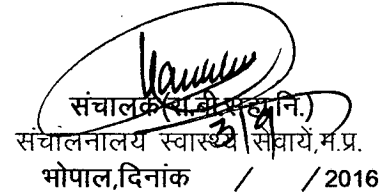 संचालक(रा.बी.सहा.नि.)
3/9
संचालनालय स्वास्थ्य सेवायें,म.प्र.
भोपाल,दिनांक / / 2016